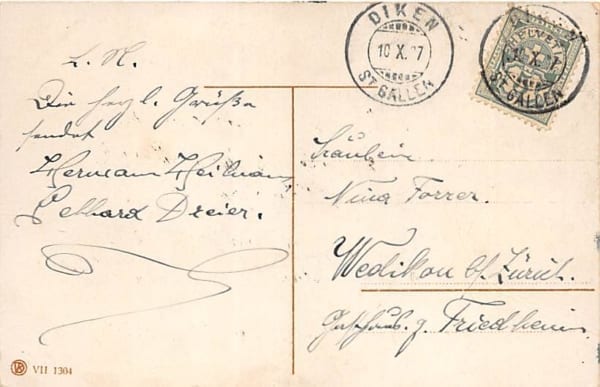 L. N.
Die herzl. Grüße
sendet
Hermann Heilmann
Gebhard Dreier.
DIKEN
10 X. 07
ST GALLEN
HELVETIA
10 X. 07
ST. GALLEN
Fräulein
Nina Forrer.
Wedikon b/ Zürich.
Gasthaus z. Friedheim
VII 1304